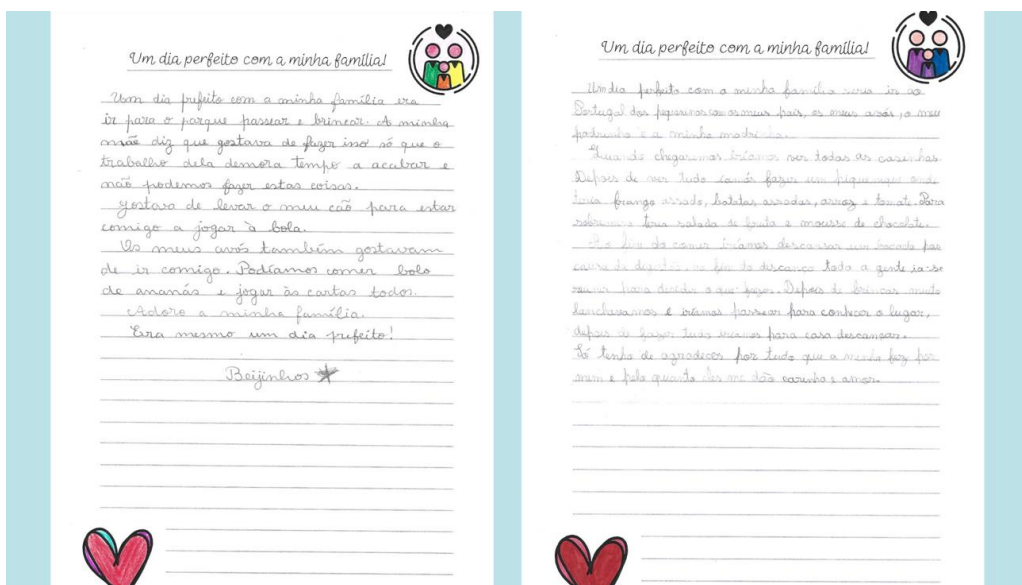 Um dia perfeito com a minha família!
Um dia prefeito com a minha família era
ir para o parque passear e brincar. A minha
mãe diz que gostava de fazer isso só que o
trabalho dela demora tempo a acabar e
não podemos fazer estas coisas.
Gostava de levar o meu cão para estar
comigo a jogar à bola.
Os meus avós também gostavam
de ir comigo. Podíamos comer bolo
de ananás e jogar às cartas todos.
Adoro a minha família.
Era mesmo um dia prefeito!
Beijinhos
Um dia perfeito com a minha família!
Um dia perfeito com a minha família seria ir ao
Portugal dos pequeninos com os meus pais, os meus avós, o meu
padrinho e a minha madrinha.
Quando chegassemos iríamos ver todas as casinhas.
Depois de ver tudo fazer um pique-nique onde
teria frango assado, batatas assadas, arroz e tomate. Para
sobremesa teria salada de fruta e mousse de chocolate.
No fim de comer iríamos descansar um bocado por
causa da digestão, no fim do descanço toda a gente ia-se
reunir para decidir o que fazer. Depois de brincar muito
lanchavamos e iríamos passear para conhecer o lugar,
depois de fazer tudo iríamos para casa descansar.
Só tenho de agradecer por tudo que a minha faz por
mim e pelo quanto eles me dão carinho e amor.